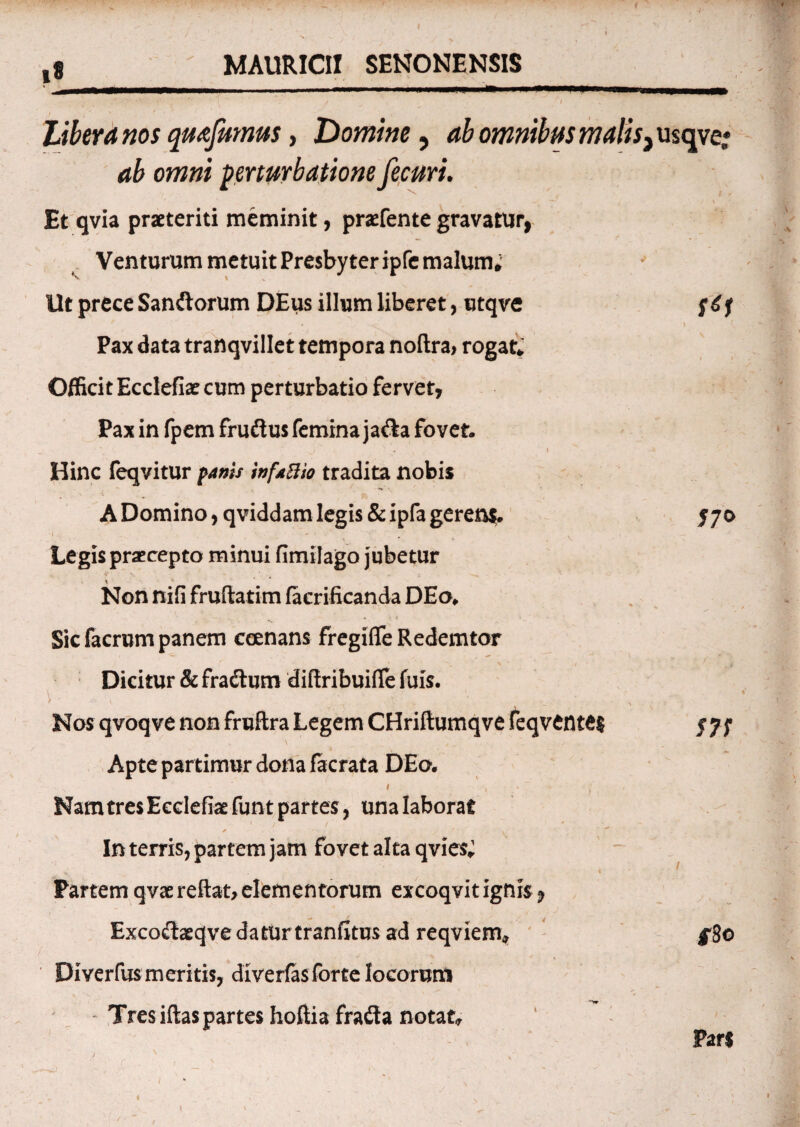 18 MAURICII SENONENSIS
Libera nos quæſumus, Domine, ab omnibus malis, usqve;
ab omni perturbatione ſecuri.
Et qvia præteriti meminit, præſente gravatur,
Venturum metuit Presbyter ipſe malum;
Ut prece Sanctorum DEus illum liberet, utqve 565
Pax data tranqvillet tempora noſtra, rogat;
Officit Eccleſiæ cum perturbatio fervet,
Pax in ſpem fructus ſemina jacta fovet.
Hinc ſeqvitur panis infactio tradita nobis
A Domino, qviddam legis & ipſa gerens. 570
Legis præcepto minui ſimilago jubetur
Non niſi fruſtatim ſacrificanda DEo.
Sic ſacrum panem cœnans fregiſſe Redemtor
Dicitur & fractum diſtribuiſſe ſuis.
Nos qvoqve non fruſtra Legem CHriſtumqve ſeqventes 575
Apte partimur dona ſacrata DEo.
Nam tres Eccleſiæ ſunt partes, una laborat
In terris, partem jam fovet alta qvies;
Partem qvæ reſtat, elementorum excoqvit ignis,
Excoctæqve datur tranſitus ad reqviem, 580
Diverſus meritis, diverſas ſorte locorum
Tres iſtas partes hoſtia fracta notat,
Pars